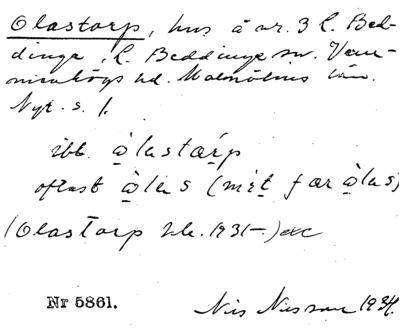 Olastorp, hus å nr. 3 L. Bed-
dinge, L. Beddinge sn. Vem-
menhögs hd. Malmöhus län.
Nyk. s. 1.
ibl. o̤lastạrp
oftast o̤las (
far o̤las)
(Olastorp 1931-)
Nr 5861.
Nils Nilsson 1934.